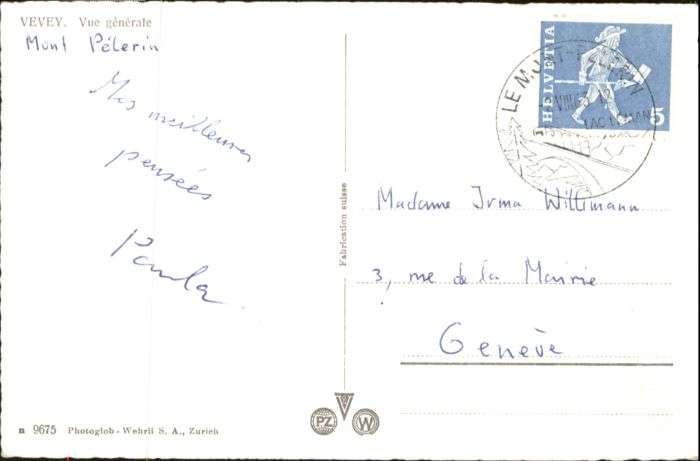 VEVEY. Vue générale
Mont Pélerin
Mes meilleures
pensées
Paula.
Fabrication suisse
HELVETIA
5
LE MONT-PÉLERIN
VIII 63
LAC LÉMAN
Madame Irma Willimann
3, rue de la Mairie
Genève
PZ
W
n 9675 Photoglob-Wehrli S. A., Zurich